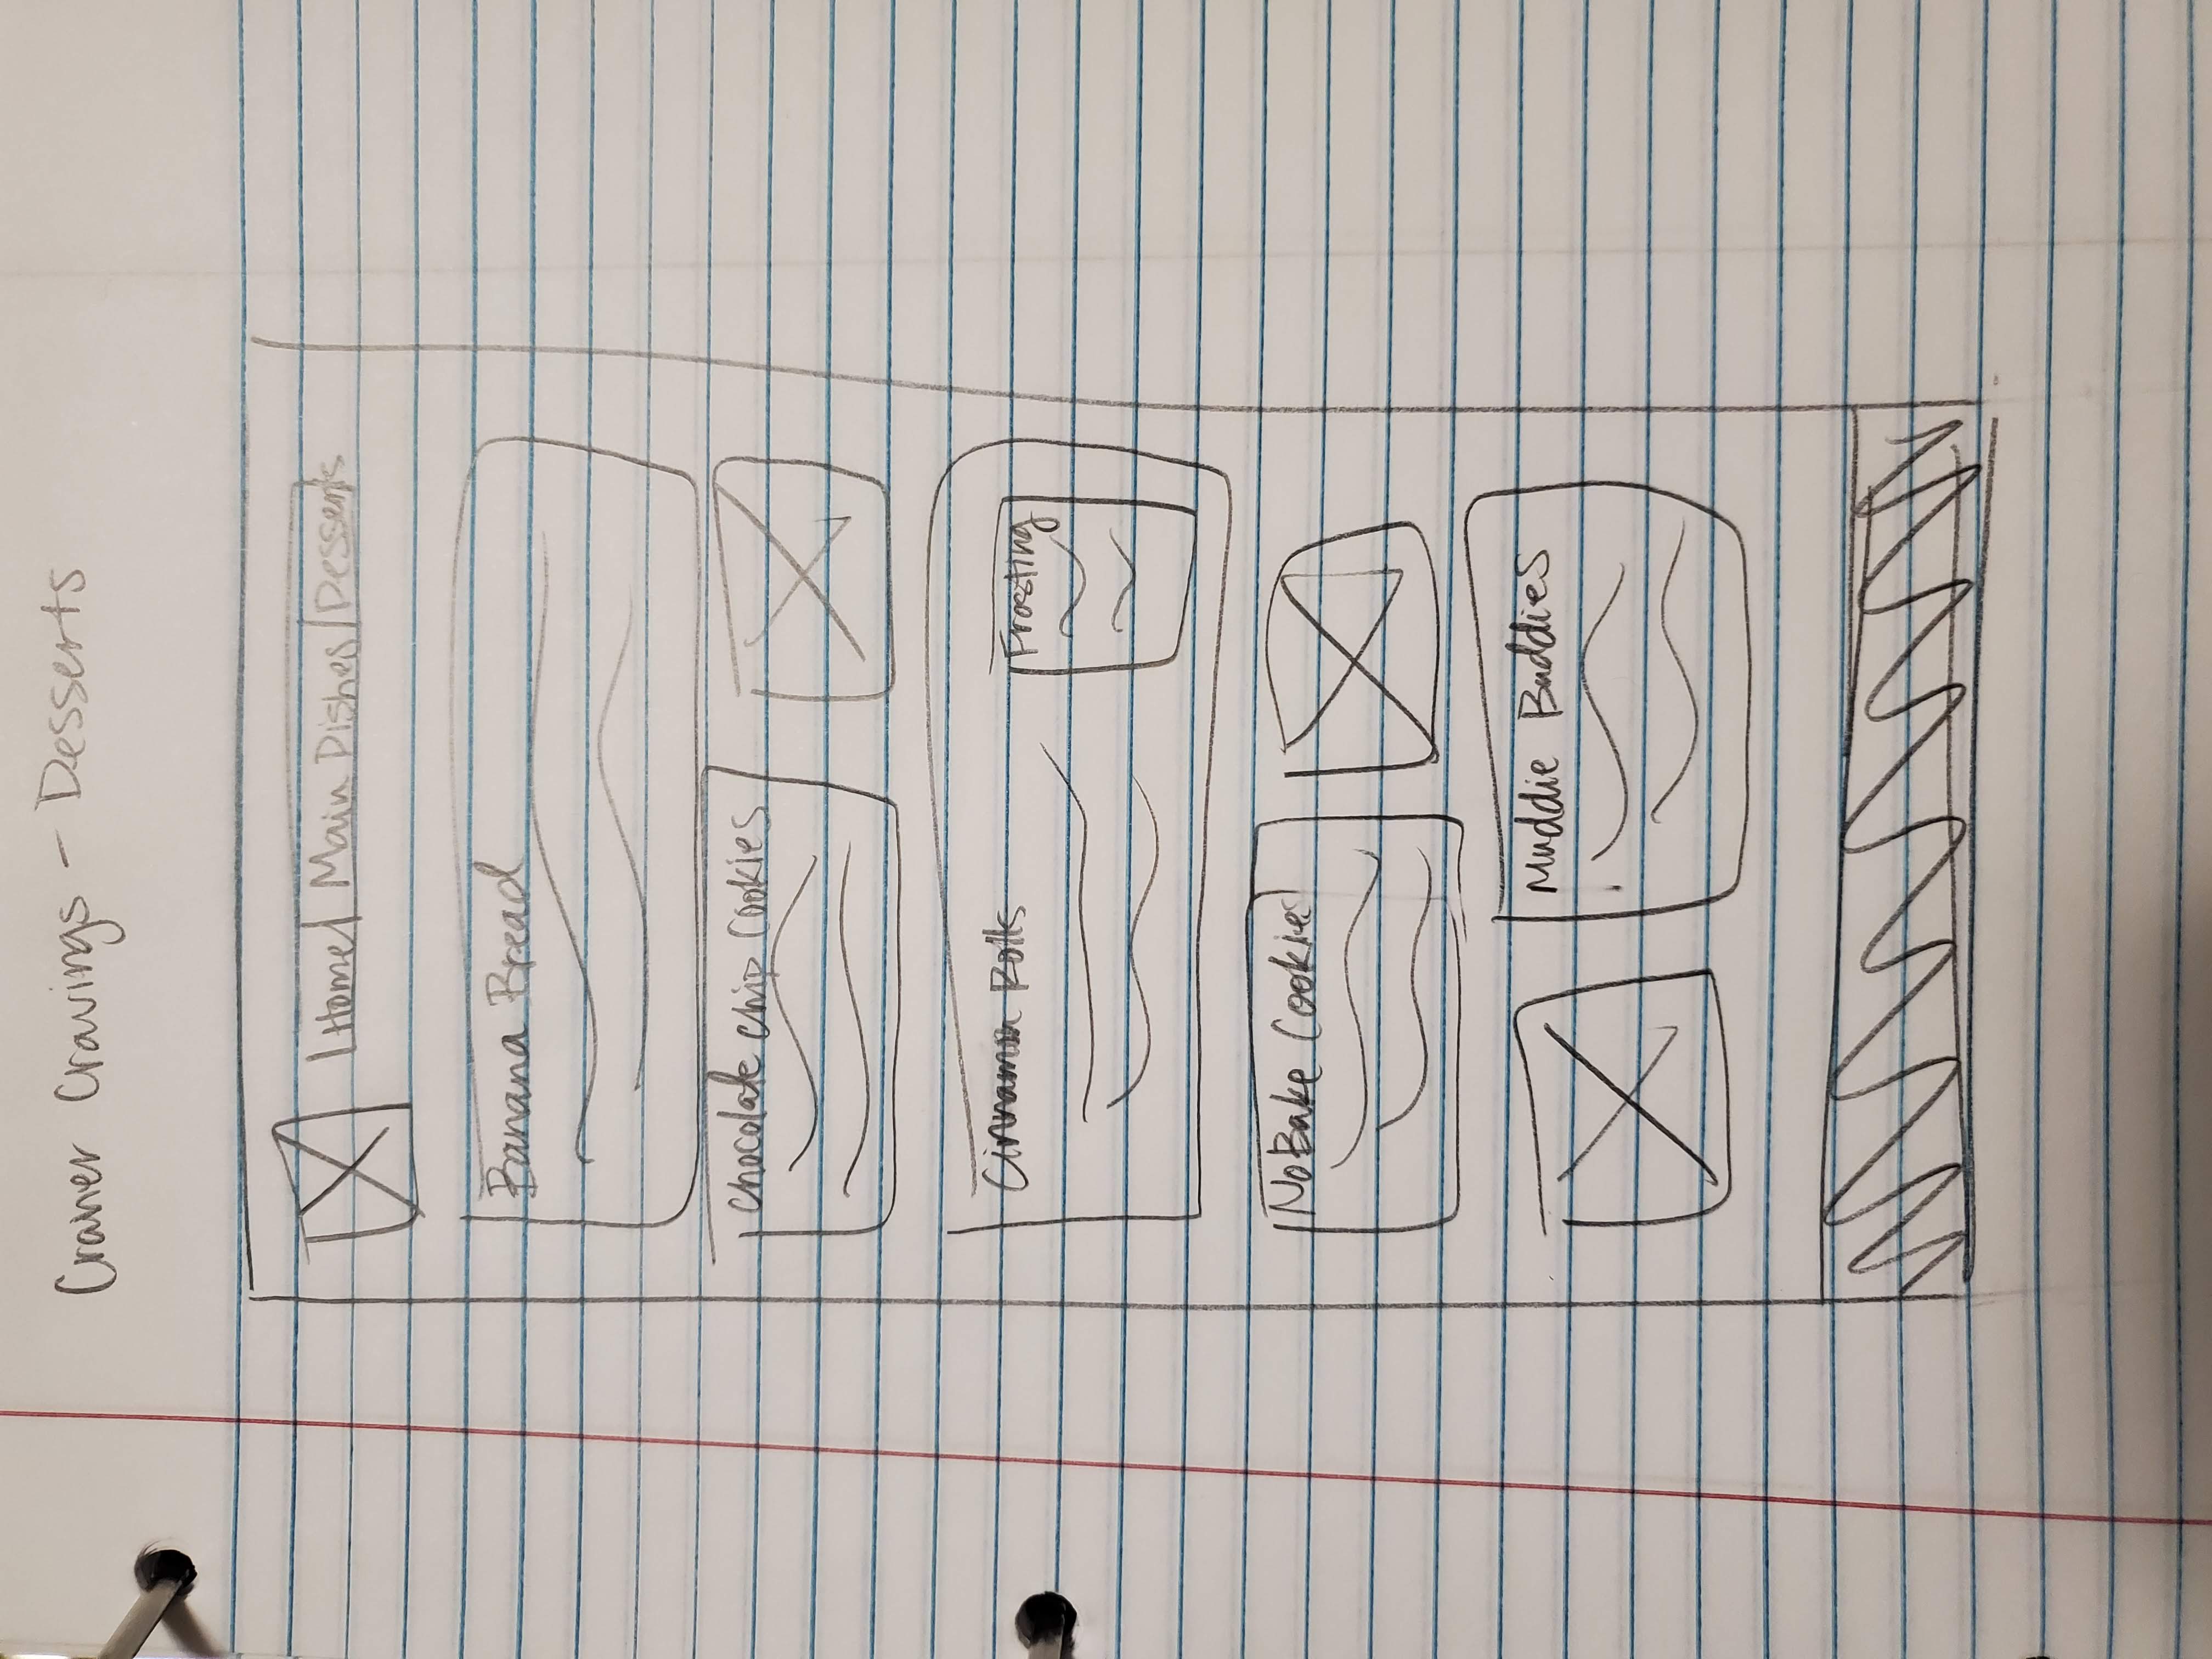 Craner Cravings - Desserts
Home Main Dishes Desserts
Banana Bread
Chocolate Chip Cookies
Cinnamon Rolls
Frosting
No Bake Cookies
Muddie Buddies